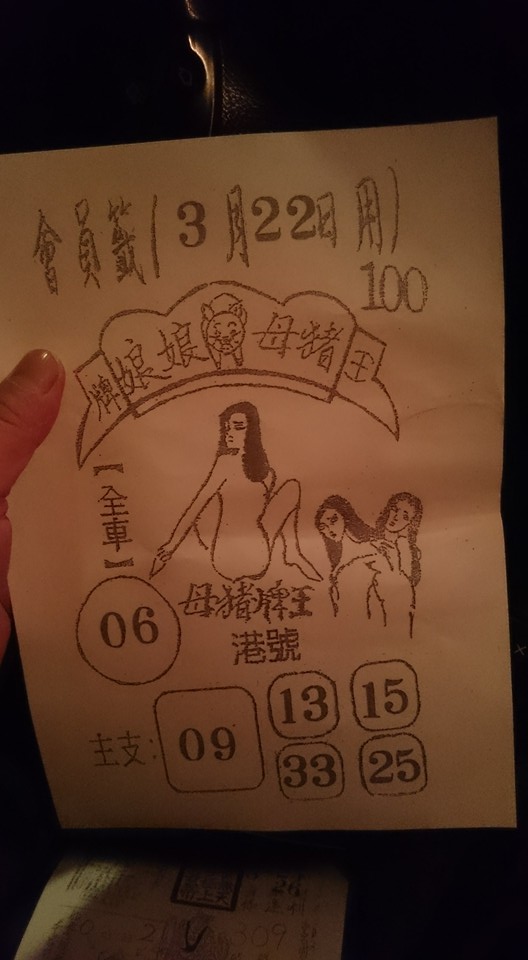 會員籤(3月22日用)
100
牌娘娘母豬王
【全車】
06
母豬牌王
港號
主支:09
13 15
33 25
26
309